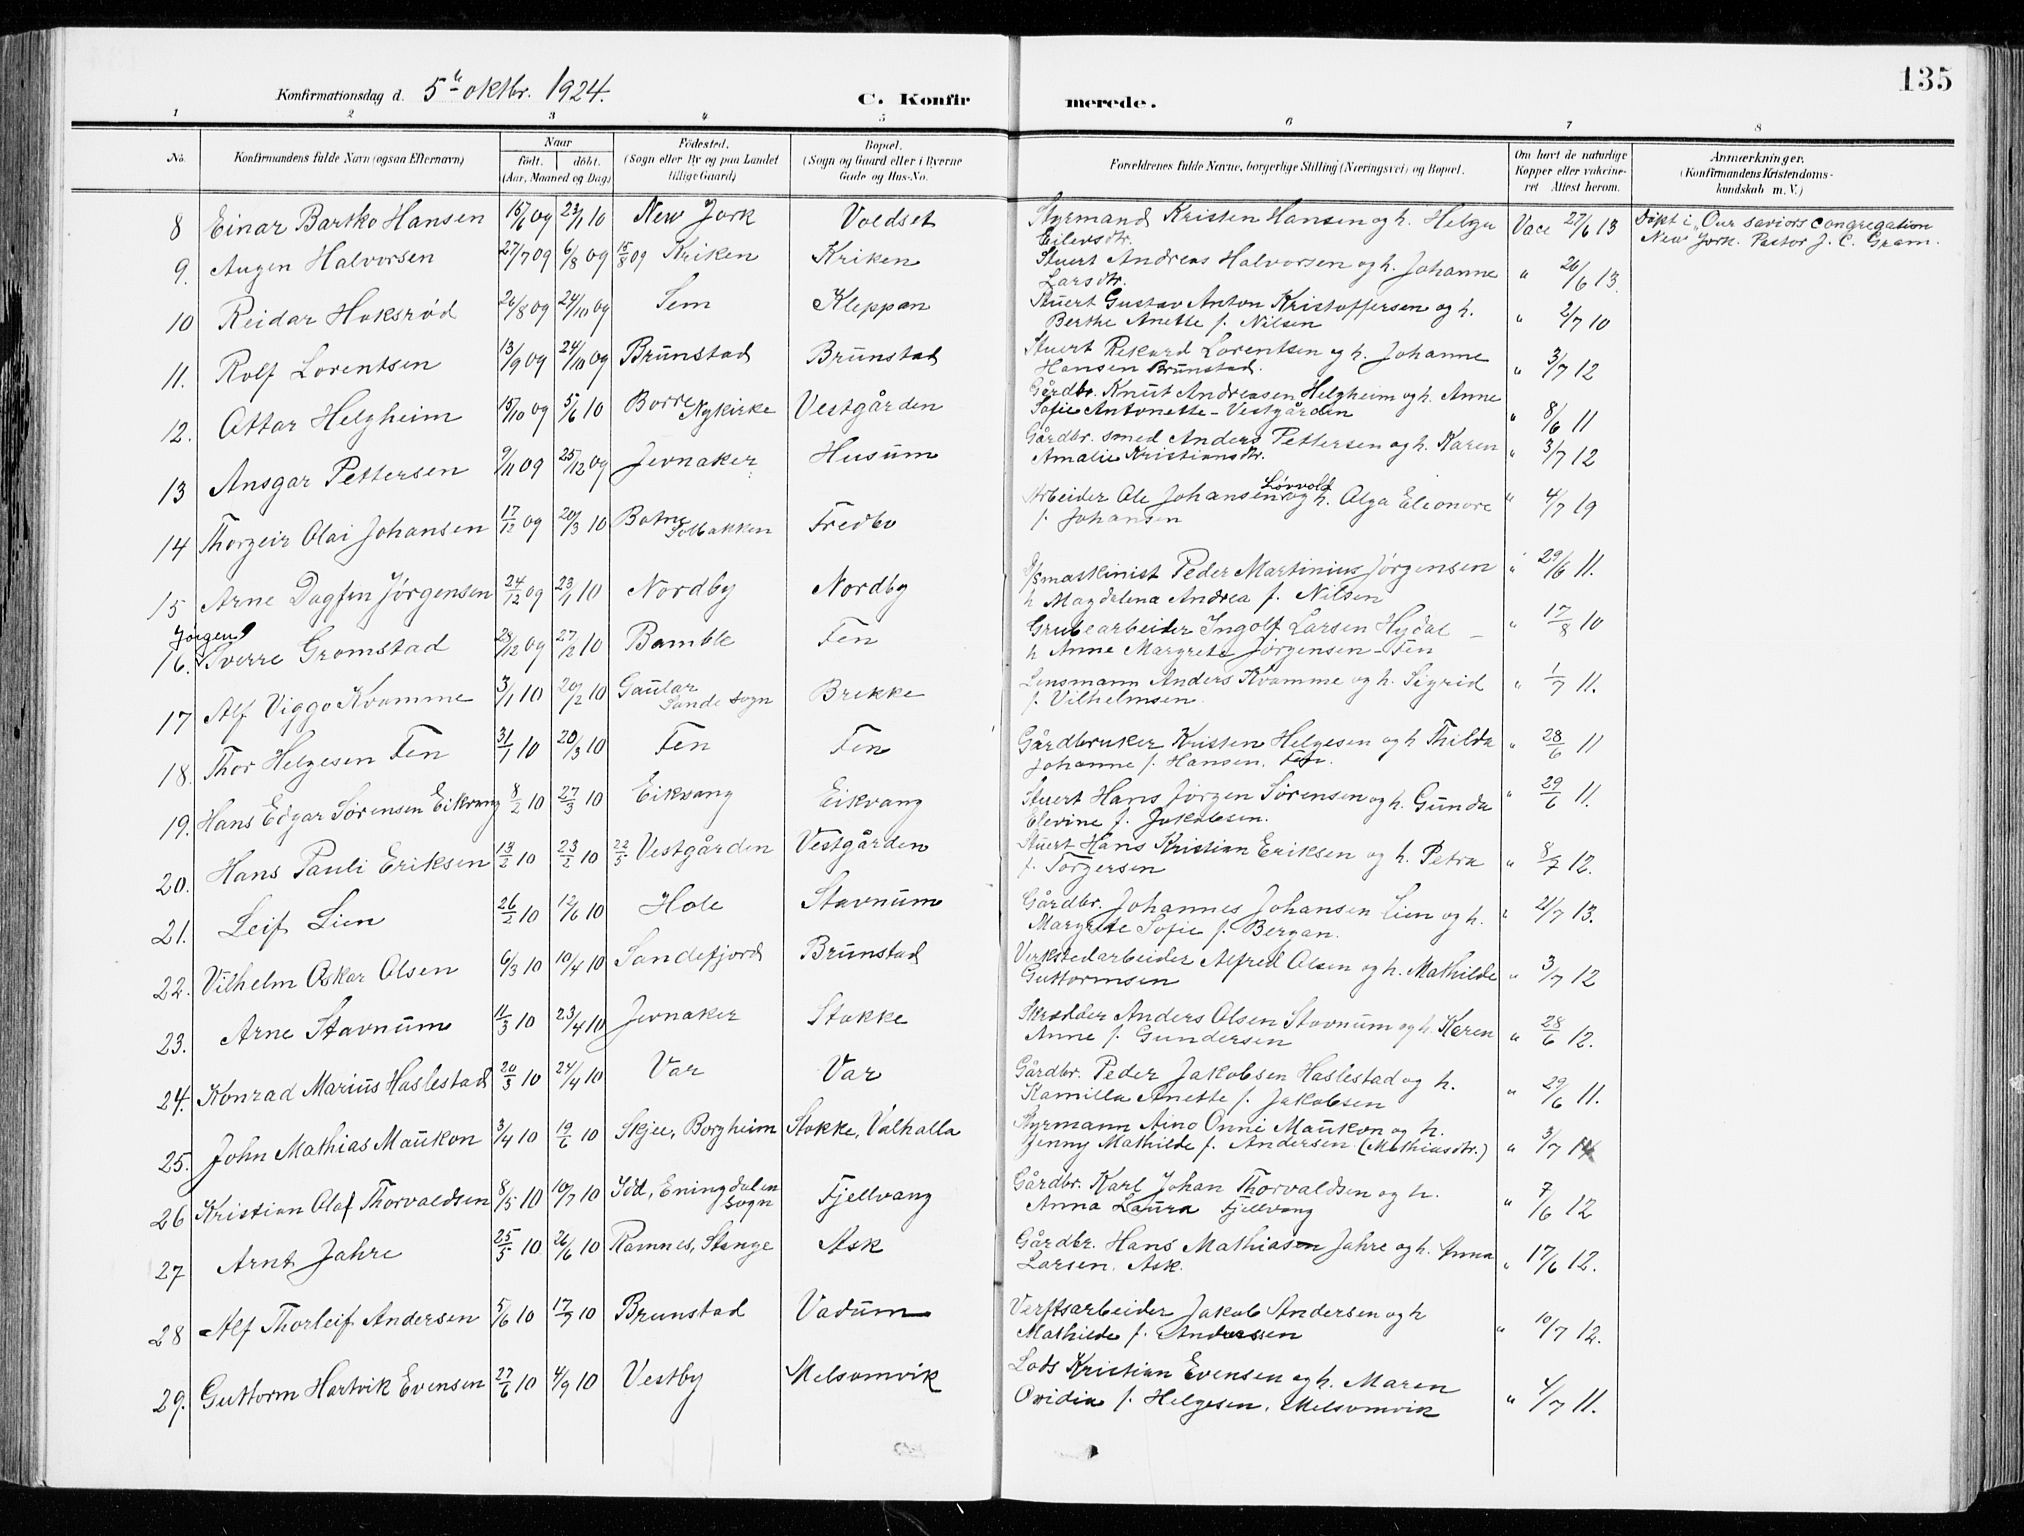 135
Konfirmationsdag d. 5te oktbr. 1924.
C. Konfirmerede.
1 2 3 4 5 6 7 8
No.
Konfirmandens fulde Navn (ogsaa Efternavn)
Naar
født. døbt.
(Aar, Maaned og Dag)
Fødested.
(Sogn eller By og paa Landet
tillige Gaard)
Bopel.
(Sogn og Gaard eller i Byerne
Gade og Hus-No.
Forældrenes fulde Navne, borgerlige Stilling (Næringsvei) og Bopæl.
Om havt de naturlige
Kopper eller vakcine-
ret Attest herom.
Anmærkninger.
(Konfirmandens Kristendoms-
kundskab m. V.)
8 Einar Bartko Hansen 15/6 09 23/1 10 New York Voldset Styrmand Kristen Hansen og h. Helga
Eilevsdtr. Vace 27/6 13 Døpt i „Our saviors congregation
New York. Pastor J. C. Gram.
9. Augen Halvorsen 27/7 09 6/8 09 15/8 09 Kriken Kriken Stuert Andreas Halvorsen og h. Johanne
Larsdtr. " 26/6 13.
10 Reidar Hoksrød 26/8 09 24/10 09 Sem Kleppan Stuert Gustav Anton Kristoffersen og h.
Berthe Anette f. Nilsen " 2/7 10
11. Rolf Lorentsen 13/9 09 24/10 09 Brunstad Brunstad Stuert Rikard Lorentsen og h. Johanne
Hansen Brunstad. " 3/7 12
12. Ottar Helgheim 15/10 09 5/6 10 Borre Nykirke Vestgården Gårdbr. Knut Andreasen Helgheim og h. Anne
Sofie Antonette - Vestgården " 8/6 11
13 Ansgar Pettersen 9/11 09 25/12 09 Jevnaker Husum Gårdbr. smed Anders Pettersen og h. Karen
Amalie Kristiansdtr. " 3/7 12
14 Thorgeir Olai Johansen 17/12 09 20/3 10 Botne Solbakken Fredbo Arbeider Ole Johansen Løvvold og h. Olga Eleonore
f. Johansen " 4/7 19
15 Arne Dagfin Jørgensen 24/12 09 23/1 10 Nordby Nordby D/Smaskinist Peder Martinius Jørgensen
h Magdalena Andrea f. Nilsen " 29/6 11.
16. Jørgen Sverre Gromstad 23/12 09 27/2 10 Bamble Fen Grubearbeider Ingolf Larsen Hydal
h Anne Margrete Jørgensen - Fen " 17/8 10
17 Alf Viggo Kvamme 3/1 10 20/2 10 Gaular Sande sogn Brekke Lensmann Anders Kvamme og h. Sigrid
f. Vilhelmsen. " 1/7 11.
18. Thor Helgesen Fen 31/1 10 20/3 10 Fen Fen Gårdbruker Kristen Helgesen og h Thilda
Johanne f. Hansen. Fen. " 28/6 11
19. Hans Edgar Sørensen Eikvang 8/2 10 27/3 10 Eikvang Eikvang Stuert Hans Jørgen Sørensen og h. Gunda
Elevine f. Jakobsen. " 29/6 11.
20. Hans Pauli Eriksen 13/2 10 23/2 10 22/5 Vestgården Vestgården Stuert Hans Kristian Eriksen og h. Petra
f. Torgersen " 8/7 12.
21. Leif Lien 26/2 10 12/6 10 Hole Stavnum Gårdbr. Johannes Johansen Lien og h.
Margrete Sofie f. Bergan. " 21/7 13.
22. Vilhelm Oskar Olsen 6/3 10 10/4 10 Sandefjord Brunstad Verkstedarbeider Alfred Olsen og h. Mathilde
Guttormsen " 3/7 12
23. Arne Stavnum 11/3 10 23/4 10 Jevnaker Stokke Skrædder Anders Olsen Stavnum og h. Karen
Anne f. Gundersen " 28/6 12.
24. Konrad Marius Haslestad 20/3 10 24/4 10 Var Var Gårdbr. Peder Jakobsen Haslestad og h.
Kamilla Anette f. Jakobsen " 29/6 11.
25. John Mathias Maukon 3/4 10 19/6 10 Skjee, Borgheim Stokke, Valhalla Styrmann Aino Onni Maukon og h.
Jenny Mathilde f. Andersen (Mathiasdtr.) " 3/7 14
26 Kristian Olaf Thorvaldsen 8/5 10 10/7 10 Idd, Eningdalen sogn Fjellvang Gårdbr. Karl Johan Thorvaldsen og h.
Anna Laura Fjellvang " 7/6 12
27 Arnt Jahre 25/5 10 26/6 10 Ramnes, Stange Ask Gårdbr. Hans Mathiasen Jahre og h. Anna
Larsen. Ask. " 17/6 12.
28 Alf Thorleif Andersen 5/6 10 17/7 10 Brunstad Vadum Verftsarbeider Jakob Andersen og h
Mathilde f. Anderssen " 10/7 12.
29. Guttorm Hartvik Evensen 27/6 10 4/9 10 Vestby Melsomvik Lods Kristian Evensen og h. Maren
Ovidia f. Helgesen. Melsomvik " 4/7 11.